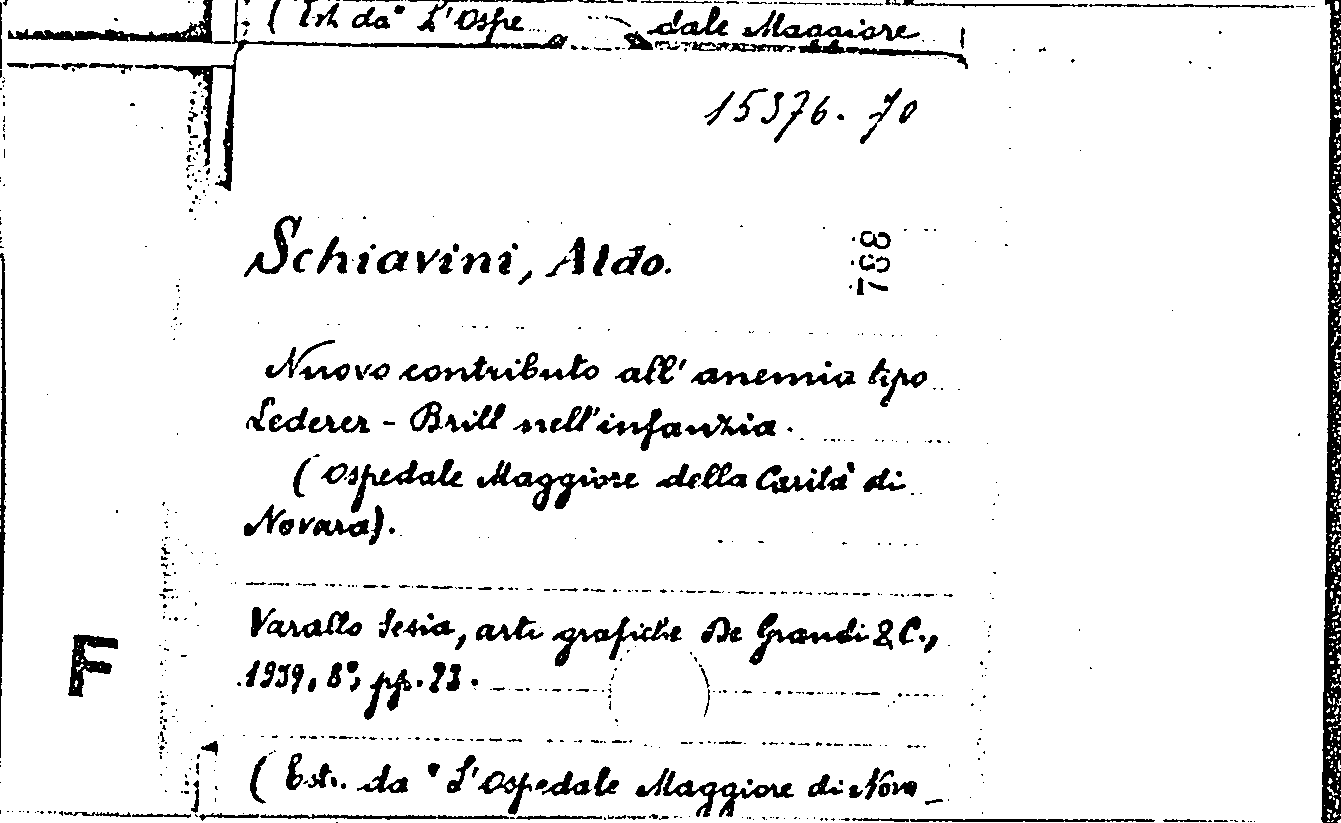 ( Est. da " L'Ospe dale Maggiore
15376. 70
Schiavini, Aldo.
788
Nuovo contributo all' anemia tipo
Lederer - Brill nell'infanzia.
( Ospedale Maggiore della Carità di
Novara).
Varallo Sesia, arti grafiche De Grandi & C.,
1939, 8°, pp. 23.
F
( Estr. da " L'Ospedale Maggiore di Nova_